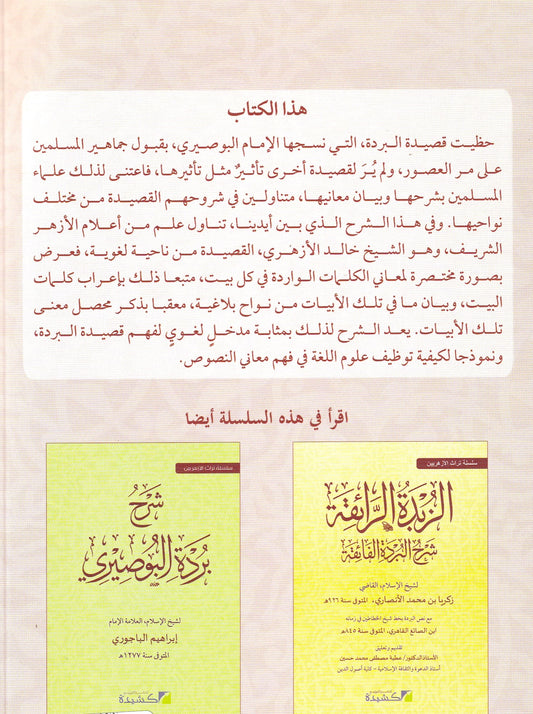 هذا الكتاب
حظيت قصيدة البردة، التي نسجها الإمام البوصيري، بقبول جماهير المسلمين
على مر العصور، ولم يُرَ لقصيدة أخرى تأثيرٌ مثل تأثيرها، فاعتنى لذلك علماء
المسلمين بشرحها وبيان معانيها، متناولين في شروحهم القصيدة من مختلف
نواحيها. وفي هذا الشرح الذي بين أيدينا، تناول علم من أعلام الأزهر
الشريف، وهو الشيخ خالد الأزهري، القصيدة من ناحية لغوية، فعرض
بصورة مختصرة لمعاني الكلمات الواردة في كل بيت، متبعا ذلك بإعراب كلمات
البيت، وبيان ما في تلك الأبيات من نواح بلاغية، معقبا بذكر محصل معنى
تلك الأبيات. يعد الشرح لذلك بمثابة مدخل لغوي لفهم قصيدة البردة،
ونموذجا لكيفية توظيف علوم اللغة في فهم معاني النصوص.
اقرأ في هذه السلسلة أيضا
سلسلة تراث الأزهريين
الزبدة الرائقة
شرح البردة الفائقة
لشيخ الإسلام، القاضي
زكريا بن محمد الأنصاري، المتوفى سنة ٩٢٦هـ
مع نص البردة بخط شيخ الخطاطين في زمانه
ابن الصائغ القاهري، المتوفى سنة ٨٤٥هـ
تقديم وتحقيق
الأستاذ الدكتور/ عطية مصطفى محمد حسين
أستاذ الدعوة والثقافة الإسلامية - كلية أصول الدين
كشيدة
سلسلة تراث الأزهريين
شرح
بردة البوصيري
لشيخ الإسلام، العلامة الإمام
إبراهيم الباجوري
المتوفى سنة ١٢٧٧هـ
كشيدة